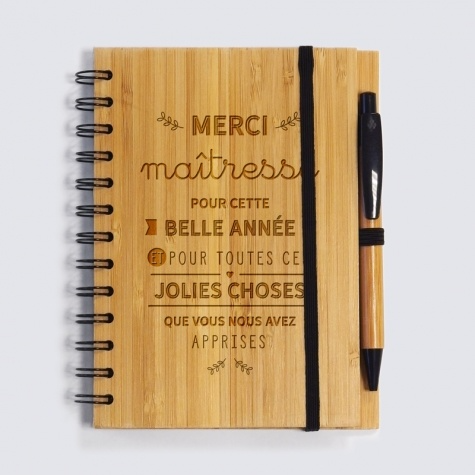 MERCI
maîtresse
POUR CETTE
BELLE ANNÉE
ET POUR TOUTES CES
JOLIES CHOSES
QUE VOUS NOUS AVEZ
APPRISES